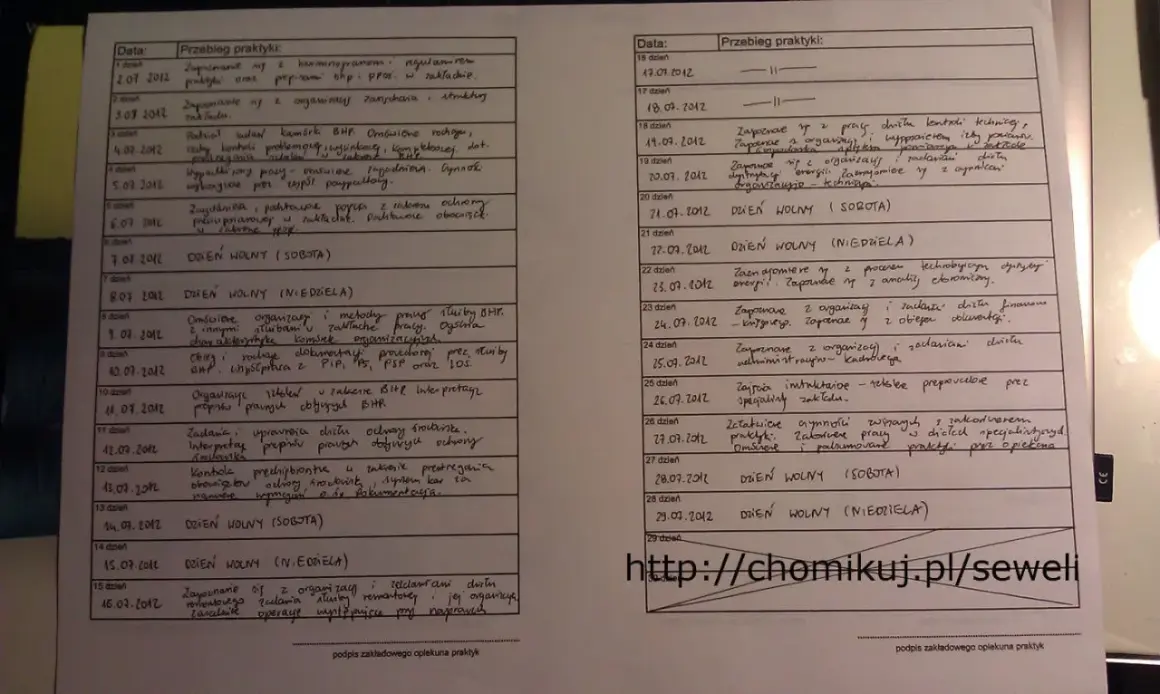 Data: Przebieg praktyki:
1 dzień
2.07.2012 Zapoznanie się z harmonogramem i regulaminem
praktyki oraz przepisami bhp i ppoż. w zakładzie.
2 dzień
3.07.2012 Zapoznanie się z organizacją i strukturą
zakładu.
3 dzień
4.07.2012 Podział zadań komórki BHP. Omówienie rodzaju,
kontroli problemowej, kompleksowej, dot.
4 dzień
5.07.2012 Wypadki przy pracy – omówienie zagadnienia. Czynności
wykonywane przez zespół powypadkowy.
5 dzień
6.07.2012 Zagadnienia, podstawowe pojęcia z zakresu ochrony
przeciwpożarowej w zakładzie. Podstawowe obowiązki
w zakresie ppoż.
6 dzień
7.07.2012 DZIEŃ WOLNY (SOBOTA)
7 dzień
8.07.2012 DZIEŃ WOLNY (NIEDZIELA)
8 dzień
9.07.2012 Omówienie organizacji i metody pracy służby BHP.
z innymi służbami w zakładzie pracy. Ogólna
charakterystyka komórek organizacyjnych.
9 dzień
10.07.2012 Obieg i rodzaje dokumentacji prowadzonej przez służby
BHP. Współpraca z PIP, PIS, PSP oraz IOŚ.
10 dzień
11.07.2012 Organizacja szkoleń w zakresie BHP. Interpretacja
przepisów prawnych dotyczących BHP.
11 dzień
12.07.2012 Zadania i uprawnienia działu ochrony środowiska.
Interpretacja przepisów prawnych dotyczących ochrony
środowiska
12 dzień
13.07.2012 Kontrola przedsiębiorstwa w zakresie przestrzegania
obowiązków ochrony środowiska, system kar za
wymagań o śr. Dokumentacja.
13 dzień
14.07.2012 DZIEŃ WOLNY (SOBOTA)
14 dzień
15.07.2012 DZIEŃ WOLNY (NIEDZIELA)
15 dzień
16.07.2012 Zapoznanie się z organizacją i zadaniami działu
remontowego. Zadania służby remontowej i jej organizacja
operacje występujące przy naprawach
podpis zakładowego opiekuna praktyk
Data: Przebieg praktyki:
16 dzień
17.07.2012 —ıı—
17 dzień
18.07.2012 —ıı—
18 dzień
19.07.2012 Zapoznanie się z pracą działu kontroli technicznej,
Zapoznanie z organizacją i wyposażeniem izby pomiarów.
19 dzień
20.07.2012 Zapoznanie się z organizacją i zadaniami działu
dystrybucji energii. Zaznajomienie się z czynnościami
organizacyjno – technicznymi.
20 dzień
21.07.2012 DZIEŃ WOLNY (SOBOTA)
21 dzień
22.07.2012 DZIEŃ WOLNY (NIEDZIELA)
22 dzień
23.07.2012 Zaznajomienie się z procesem technologicznym dystrybucji
energii. Zapoznanie się z analizą ekonomiczną.
23 dzień
24.07.2012 Zapoznanie z organizacją i zadania działu finansowo
– księgowego. Zapoznanie się z obiegiem dokumentacji.
24 dzień
25.07.2012 Zapoznanie z organizacją i zadaniami działu
administracyjno – kadrowego
25 dzień
26.07.2012 Zajęcia instruktażowe – szkolenie przeprowadzone przez
specjalistę zakładu.
26 dzień
27.07.2012 Załatwienie czynności związanych z zakończeniem
praktyki. Zakończenie pracy w działach specjalistycznych.
Omówienie i podsumowanie praktyki przez opiekuna
27 dzień
28.07.2012 DZIEŃ WOLNY (SOBOTA)
28 dzień
29.07.2012 DZIEŃ WOLNY (NIEDZIELA)
29 dzień
http://chomikuj.pl/seweli
podpis zakładowego opiekuna praktyk
CE